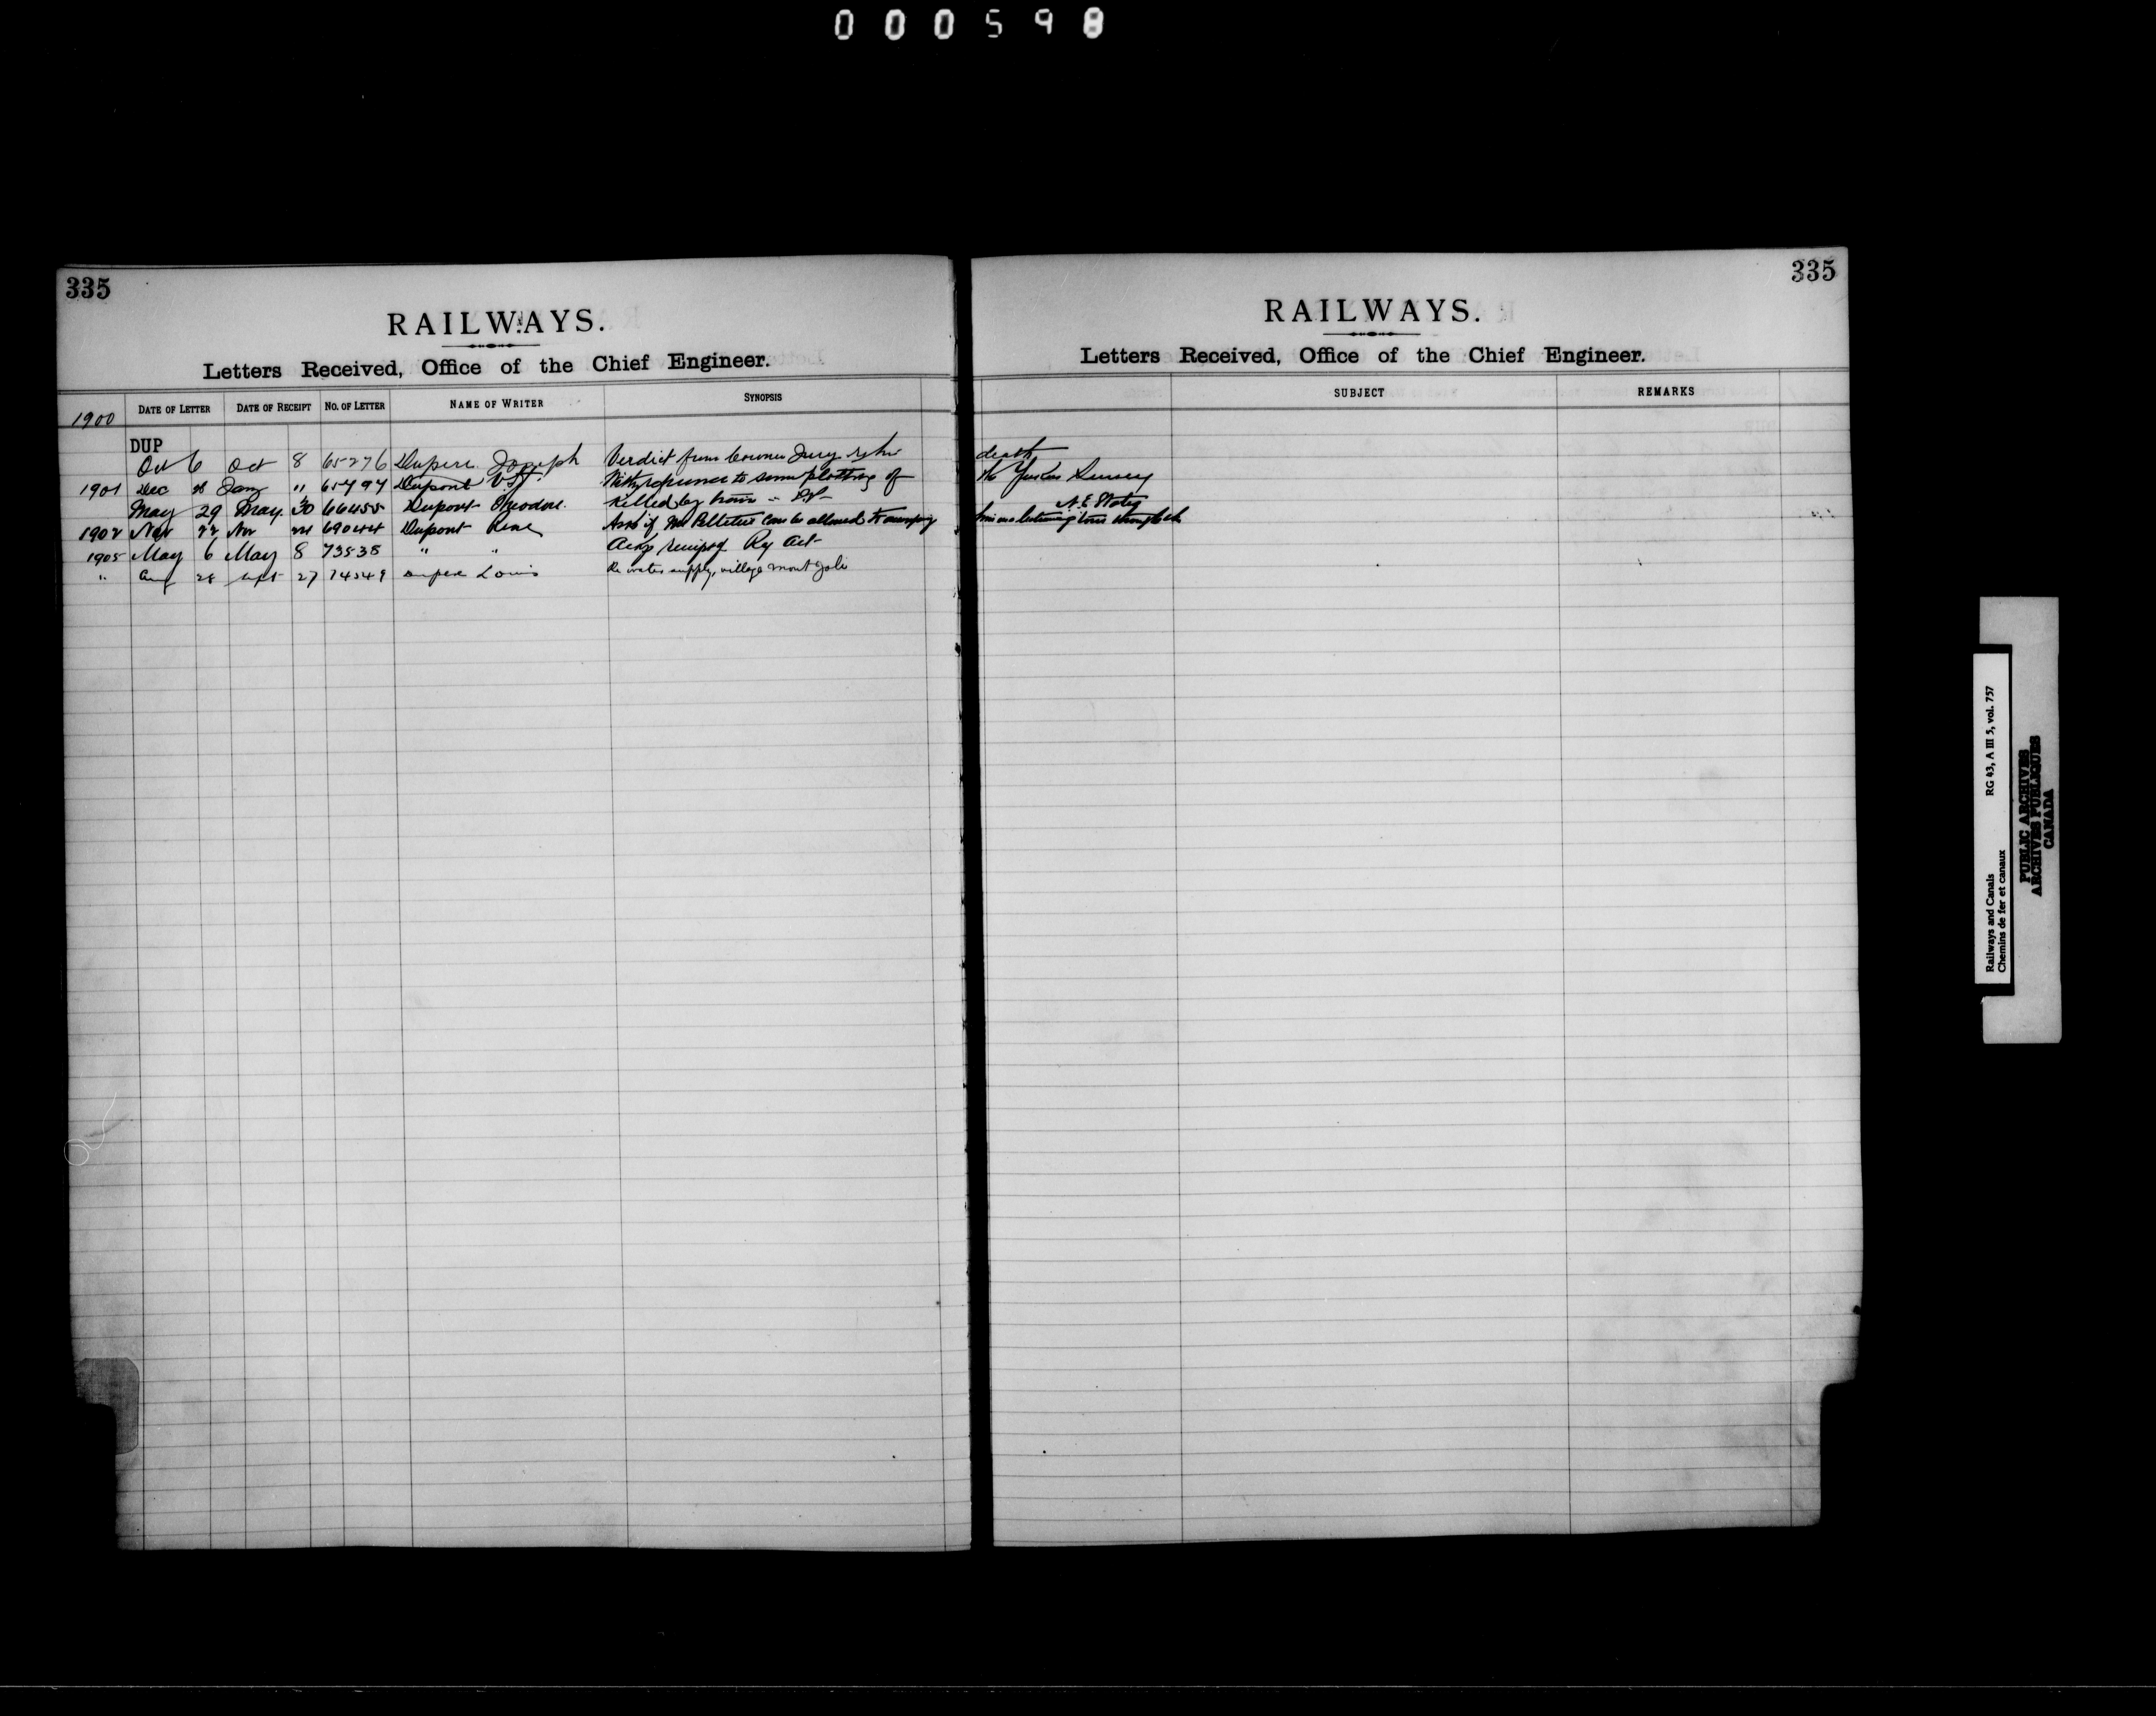 000598
335
RAILWAYS.
Letters Received, Office of the Chief Engineer.
1900 DATE OF LETTER DATE OF RECEIPT NO. OF LETTER NAME OF WRITER SYNOPSIS
DUP
Oct 6 Oct 8 65276 Dupere Joseph Verdict from Coroner Jury re his
1901 Dec Jany " 65797 Dupont V.F. With reference to some plotting of
May 29 May 30 66455 Dupont Theodore. Killed by train
1902 Nov 22 Nov 24 69044 Dupont Rene Asks if Mr Pelletier can be allowed to accompany
1905 May 6 May 8 73538 " " Ackg receipt of Ry Act
" Aug 28 Sept 27 74549 Dupere Louis Re water supply, village Mont Joli
335
RAILWAYS.
Letters Received, Office of the Chief Engineer.
SUBJECT REMARKS
death
the Yukon Survey
him on lecturing tour through the
Railways and Canals RG 43, A III 5, vol. 757
Chemins de fer et canaux
PUBLIC ARCHIVES
ARCHIVES PUBLIQUES
CANADA